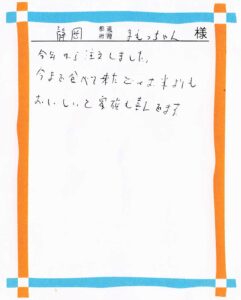 静岡 都道府県 まもっちゃん 様
今年から注文しました。
今まで食べて来たどのお米よりも
おいしいと家族も喜んでます